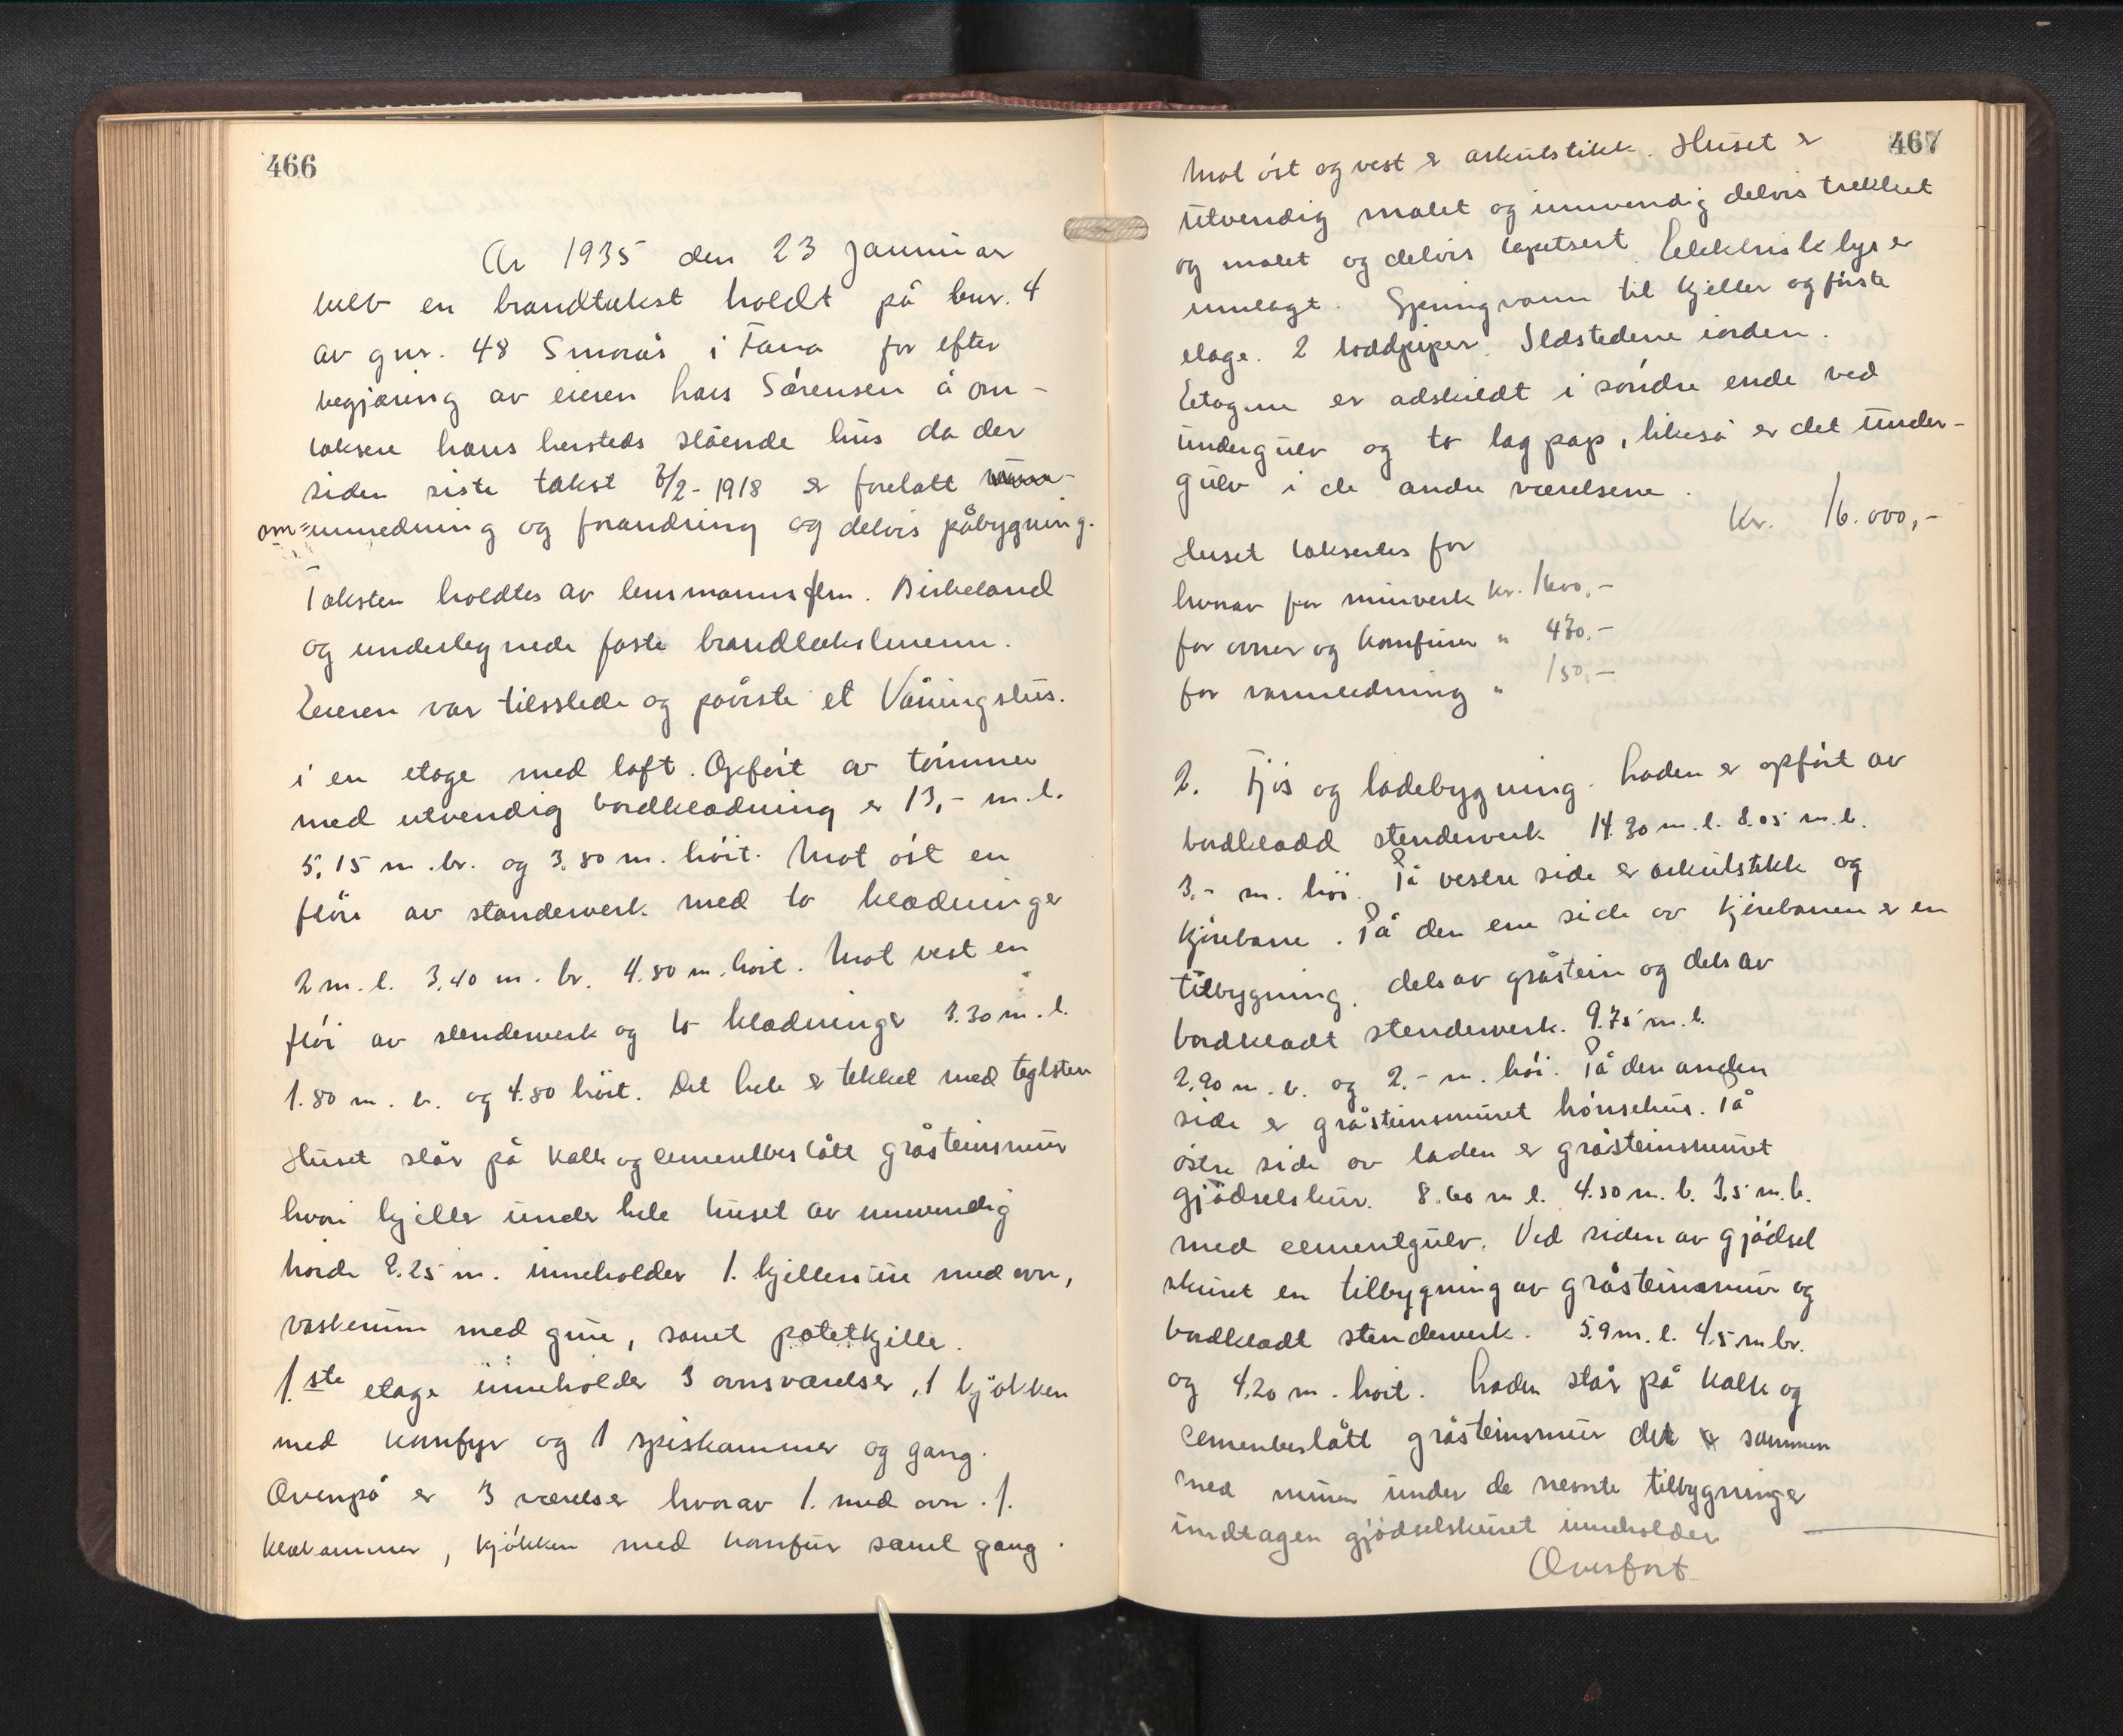 466
År 1935 den 23 Januar
blev en brandtakst holdt på bnr. 4
av gnr. 48 Smørås i Fana for efter
begjæring av eieren Hans Sørensen å om-
taksere hans hersteds stående hus da der
siden siste takst 2/2-1918 er foretatt
om-innredning og forandring og delvis påbygning.
Taksten holdtes av lensmannsflm. Birkeland
og undertegnede faste brandtakstmenn.
Eieren var tilstede og påviste et Våningshus.
i en etage med loft. Opført av tømmer
med utvendig bordklædning er 13,- m.l.
5,15 m. br. og 3.80 m. høit. Mot øst en
fløi av stenderverk med to klædninger
2 m. l. 3.40 m. br. 4.80 m. høit. Mot vest en
fløi av stenderverk og to klædninger 3.30 m. l.
1.80 m. b. og 4.80 høit. Det hele er tekket med teglsten
Huset står på kalk og cementbeslått gråsteinsmur
hvori kjeller under hele huset av innvendig
høide 2.25 m. inneholder 1. kjellerstue med ovn,
vaskerum med grue, samt potetkjeller.
1.ste etage inneholder 3 ovnsværelser, 1 kjøkken
med komfyr og 1 spiskammer og gang.
Ovenpå er 3 værelser hvorav 1. med ovn. 1.
klækammer, kjøkken med komfur samt gang.
467
Mot øst og vest er arkutstikk. Huset er
utvendig malet og innvendig delvis trekket
og malet og delvis tapetsert. Elektrisk lys er
innlagt. Springvann til kjeller og første
etage. 2 loddpiper. Ildstedene iorden.
Etagene er adskildt i søndre ende ved
undergulv og to lag pap, likeså er det under-
gulv i de andre værelsene.
Huset takseres for kr. 16.000,-
hvorav for murverk kr. 1600,-
for ovner og komfurer " 430.-
for vannledning " 150,-
2. Fjøs og ladebygning. Laden er opført av
bordklædd stenderverk 14.30 m. l. 8.05 m. b.
3.- m. høi. På vestre side er arkutstikk og
kjørebane. På den ene side av kjørebanen er en
tilbygning, dels av gråstein og dels av
bordklædt stenderverk. 9.75 m. l.
2,90 m. b. og 2.- m. høi. På den anden
side er gråsteinsmuret hønsehus. På
østre side av laden er gråsteinsmuret
gjødselskur. 8.60 m l. 4.50 m. b. 3,5 m. h.
med cementgulv. Ved siden av gjødsel
skuret en tilbygning av gråsteinsmur og
bordklædt stenderverk. 5.9 m. l. 4.5 m br.
og 4,20 m. høit. Laden står på kalk og
cemenbeslått gråsteinsmur det sammen
med muren under de nevnte tilbygninger
undtagen gjødselskuret inneholder
Overført